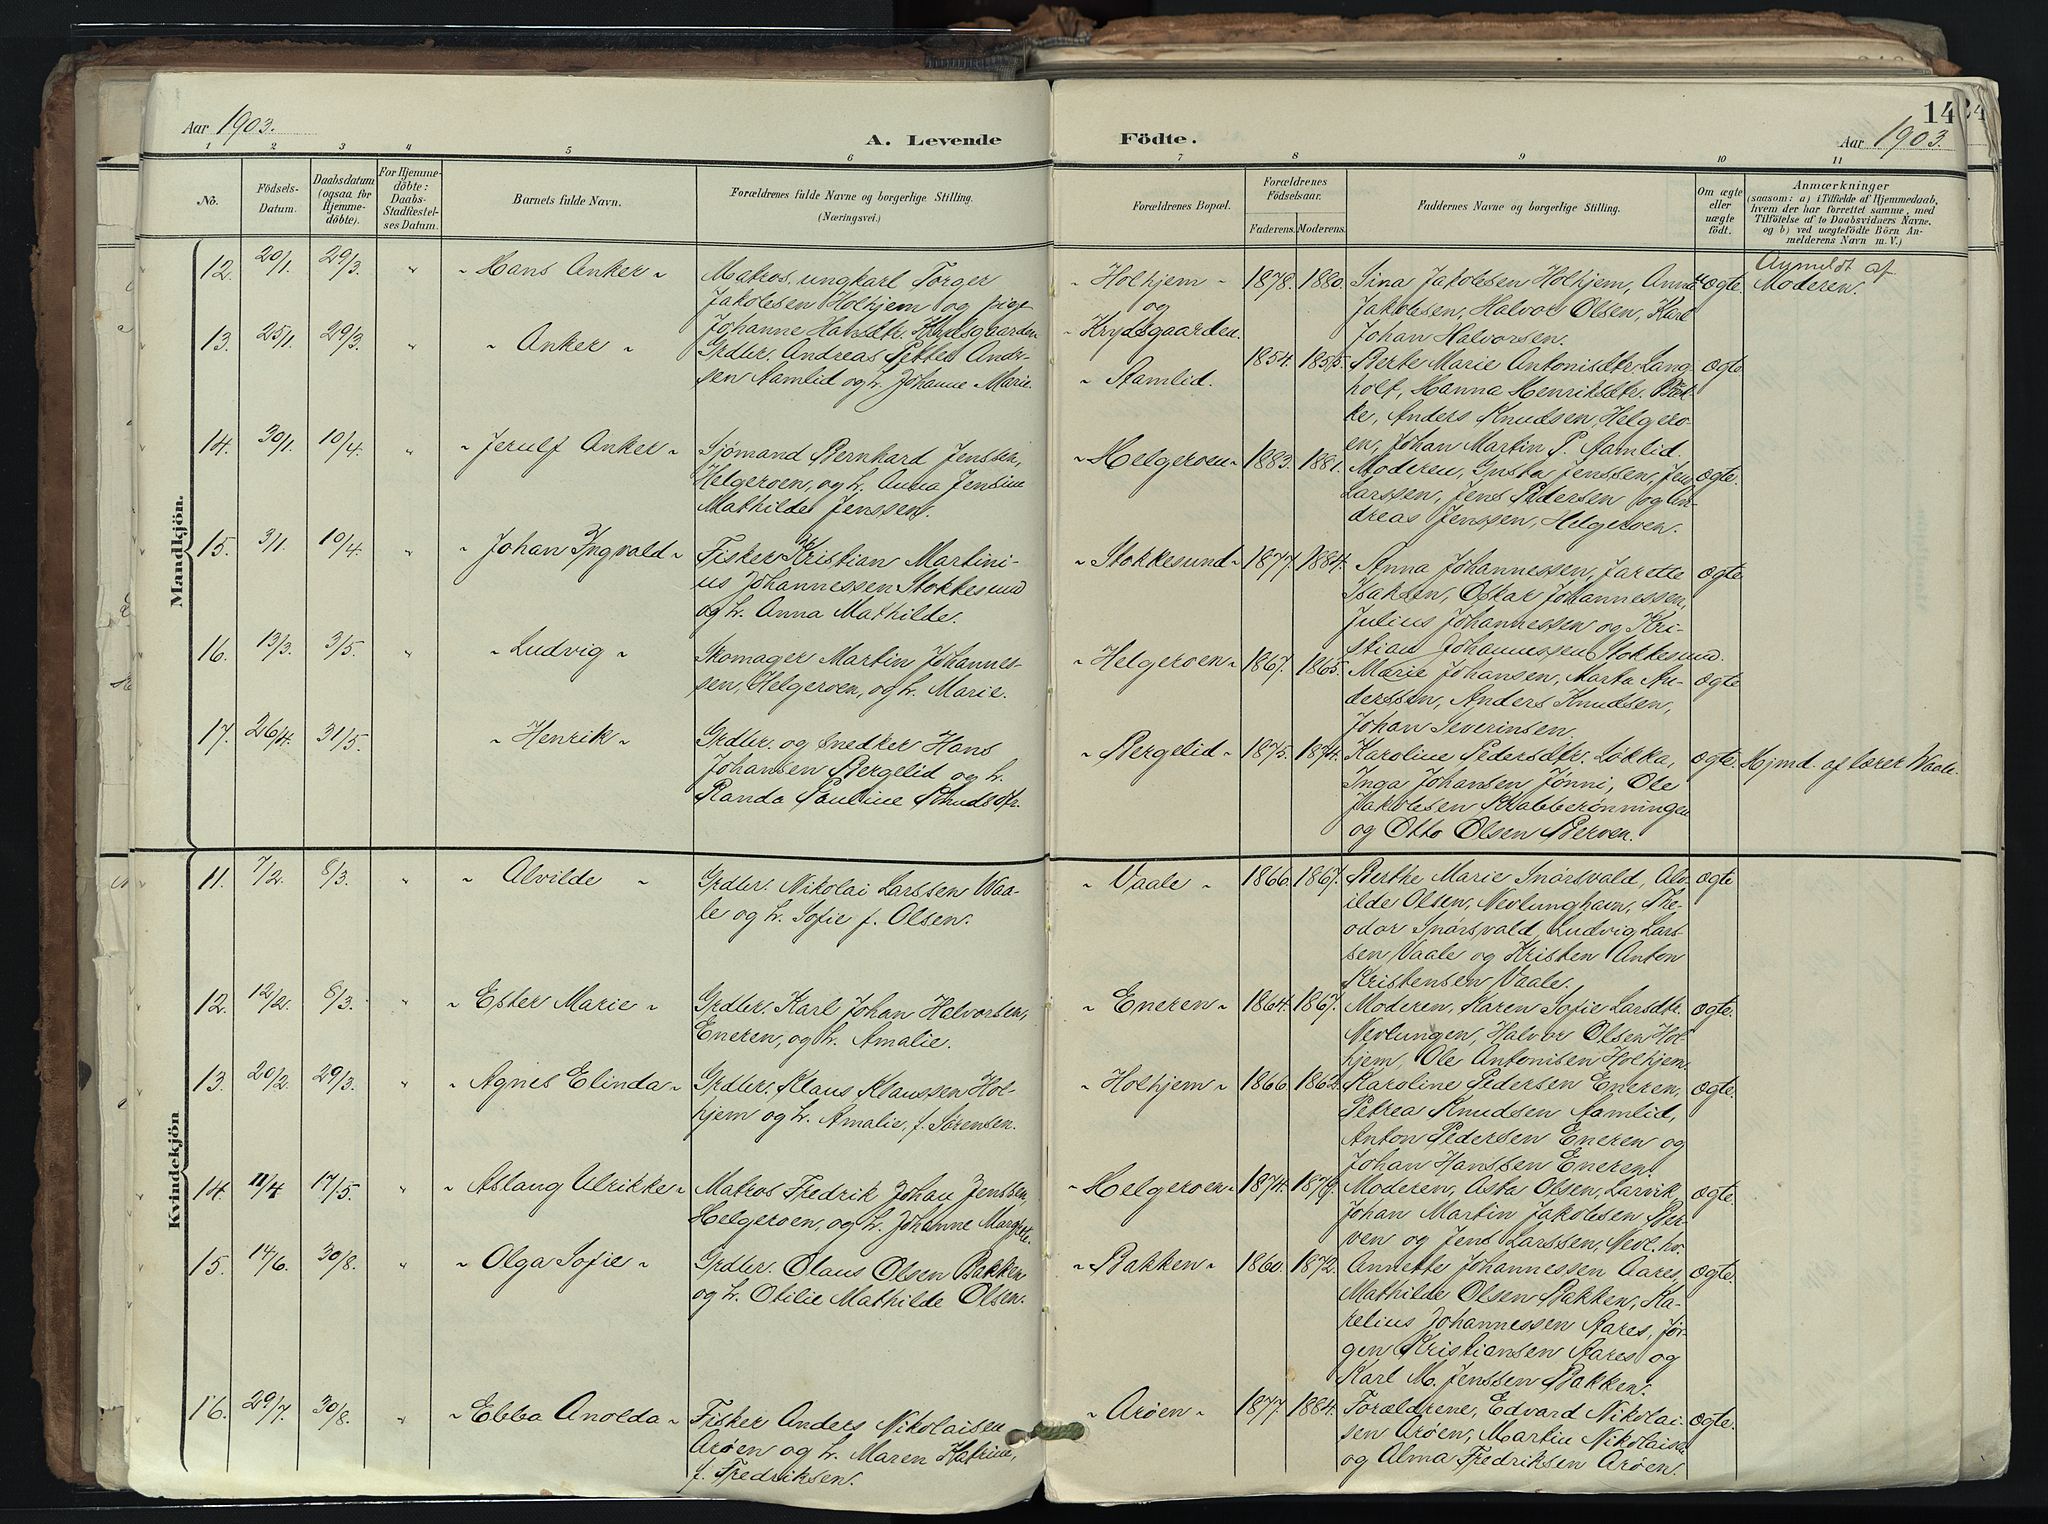 Aar 1903.
A. Levende
Födte.
14
24
Aar 1903.
1 2 3 4 5 6 7 8 9 10 11
Nö.
Födsels-Datum.
Daabsdatum (ogsaa for Hjemmedöbte).
For Hjemmedöbte: Daabs-Stadfæstelses Datum.
Barnets fulde Navn.
Forældrenes fulde Navne og borgerlige Stilling.
(Næringsvei.)
Forældrenes Bopæl.
Forældrenes Födselsaar.
Faderens. Moderens.
Faddernes Navne og borgerlige Stilling.
Om ægte eller uægte födt.
Anmærkninger
(saasom: a) i Tilfælde af Hjemmedaab,
hvem der har forrettet samme, med
Tilföielse af to Daabsvidners Navne.
og b) ved uægtefödte Börn Anmelderens Navn m. V.)
Mandkjön.
12. 20/1. 29/3. " Hans Anker "
Matros, ungkarl Torger
Jakobsen Holhjem og pige
Johanne Hansdtr. Krydsgaarden
" Holhjem "
og
Krydsgaarden.
1878. 1880.
Sina Jakobsen Holhjem, Anna
Jakobsen, Halvor Olsen, Karl
Johan Halvorsen.
uægte.
Anmeldt af
Moderen.
13. 25/1. 29/3. " Anker "
Grdbr. Andreas Petter Andr-
sen Aamlid og h. Johanne Marie.
" Aamlid.
1854. 1855.
Berte Marie Antonisdtr. Lang-
holt, Hanna Henriksdtr.
Anders Knudsen, Helgero-
en, Johan Martin P. Aamlid.
ægte.
14. 30/1. 10/4. " Jerulf Anker "
Sjømand Bernhard Jenssen,
Helgeroen, og h. Anna Jensine
Mathilde Jenssen.
" Helgeroen "
1883. 1881.
Moderen, Gusta Jenssen, Jens
Larssen, Jens Pedersen og An-
dreas Jenssen, Helgeroen.
ægte.
15. 3/1. 10/4. " Johan Ingvald "
Fisker Kristian Martini-
us Johannessen Stokkesund
og h. Anna Mathilde.
" Stokkesund "
1877. 1884.
Anna Johannessen, Jarette
Isaksen, Oskar Johannessen,
Julius Johannessen og Kri-
stian Johannessen Stokkesund.
ægte
16. 13/3. 3/5. " Ludvig "
Skomager Martin Johannes-
sen, Helgeroen, og h. Marie.
" Helgeroen "
1867. 1865.
Marie Johansen, Marta An-
derssen, Anders Knudsen,
Johan Severinsen.
ægte
17. 26/4. 31/5. " Henrik "
Grdbr. og snedker Hans
Johansen Bergelid og h.
Randa Pauline Knudsdtr.
" Bergelid "
1875. 1874.
Karoline Pedersdtr. Løkka,
Inga Johansen Jønni, Ole
Jakobsen Kvabberønningen
og Otto Olsen Berven.
ægte.
Hjmd. af lærer Vaale.
Kvindekjön
11. 7/2. 8/3. " Alvilde "
Grdbr. Nikolai Larssen Vaa-
le og h. Sofie f. Olsen.
" Vaale "
1866. 1867.
Berthe Marie Snørsvald, Alv-
ilde Olsen, Nevlunghavn, The-
odor Snørsvald, Ludvig Lars-
sen Vaale og Kristen Anton
Kristensen Vaale.
ægte
12. 12/2. 8/3. " Ester Marie "
Grdbr. Karl Johan Halvorsen,
Eneren, og h. Amalie.
" Eneren "
1864. 1867.
Moderen, Karen Sofie Larsdtr.
Nevlungen, Halvor Olsen Hol-
hjem, Ole Antonisen Holhjem.
ægte.
13. 20/2. 29/3. " Agnes Elinda "
Grdbr. Klaus Klaussen Hol-
hjem og h. Amalie, f. Sørensen.
" Holhjem "
1866. 1862.
Karoline Pedersen Eneren,
Petrea Knudsen Aamlid,
Anton Pedersen Eneren og
Johan Hanssen Eneren.
ægte.
14. 11/4 17/5. " Aslaug Ulrikke "
Matros Fredrik Johan Jenssen,
Helgeroen, og h. Johanne Margrete.
" Helgeroen "
1874. 1879.
Moderen, Asta Olsen, Larvik,
Johan Martin Jakobsen Ber-
ven og Jens Larssen, Nevl. hv.
ægte.
15. 14/6. 30/8. " Olga Sofie "
Grdbr. Olaus Olsen Bakken
og h. Otilie Mathilde Olsen.
" Bakken "
1860. 1872.
Annette Johannessen Aares,
Mathilde Olsen Bakken, Ka-
relius Johannessen Aares, Jør-
gen Kristiansen Aares og
Karl M. Jenssen Bakken.
ægte.
16. 29/7. 30/8. " Ebba Anolda "
Fisker Anders Nikolaisen
Arøen og h. Maren Katrine,
f. Fredriksen.
" Arøen "
1877. 1884.
Forældrene, Edvard Nikolai-
sen Arøen, Martin Nikolaisen
og Alma Fredriksen Arøen.
ægte.